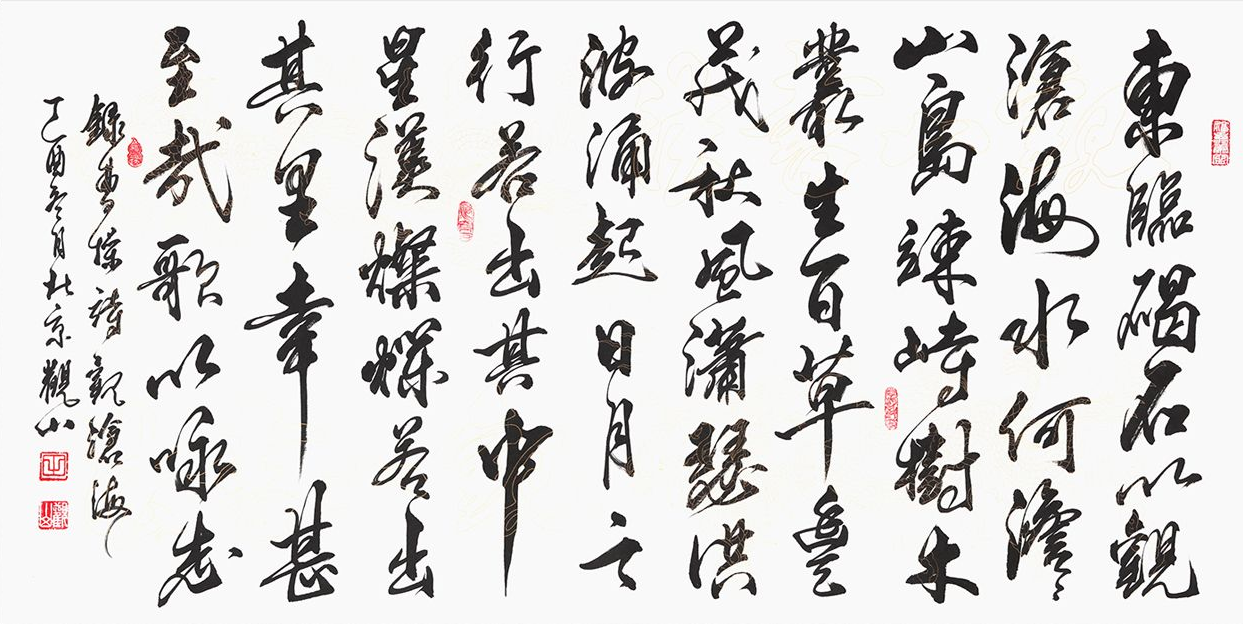 東臨碣石以觀
滄海水何澹〻
山島竦峙樹木
叢生百草豐
茂秋風瀟瑟洪
波涌起日月之
行若出其中
星漢燦爛若出
其里幸甚
至哉歌以咏志
錄曹操詩觀滄海
丁酉冬月北京觀山